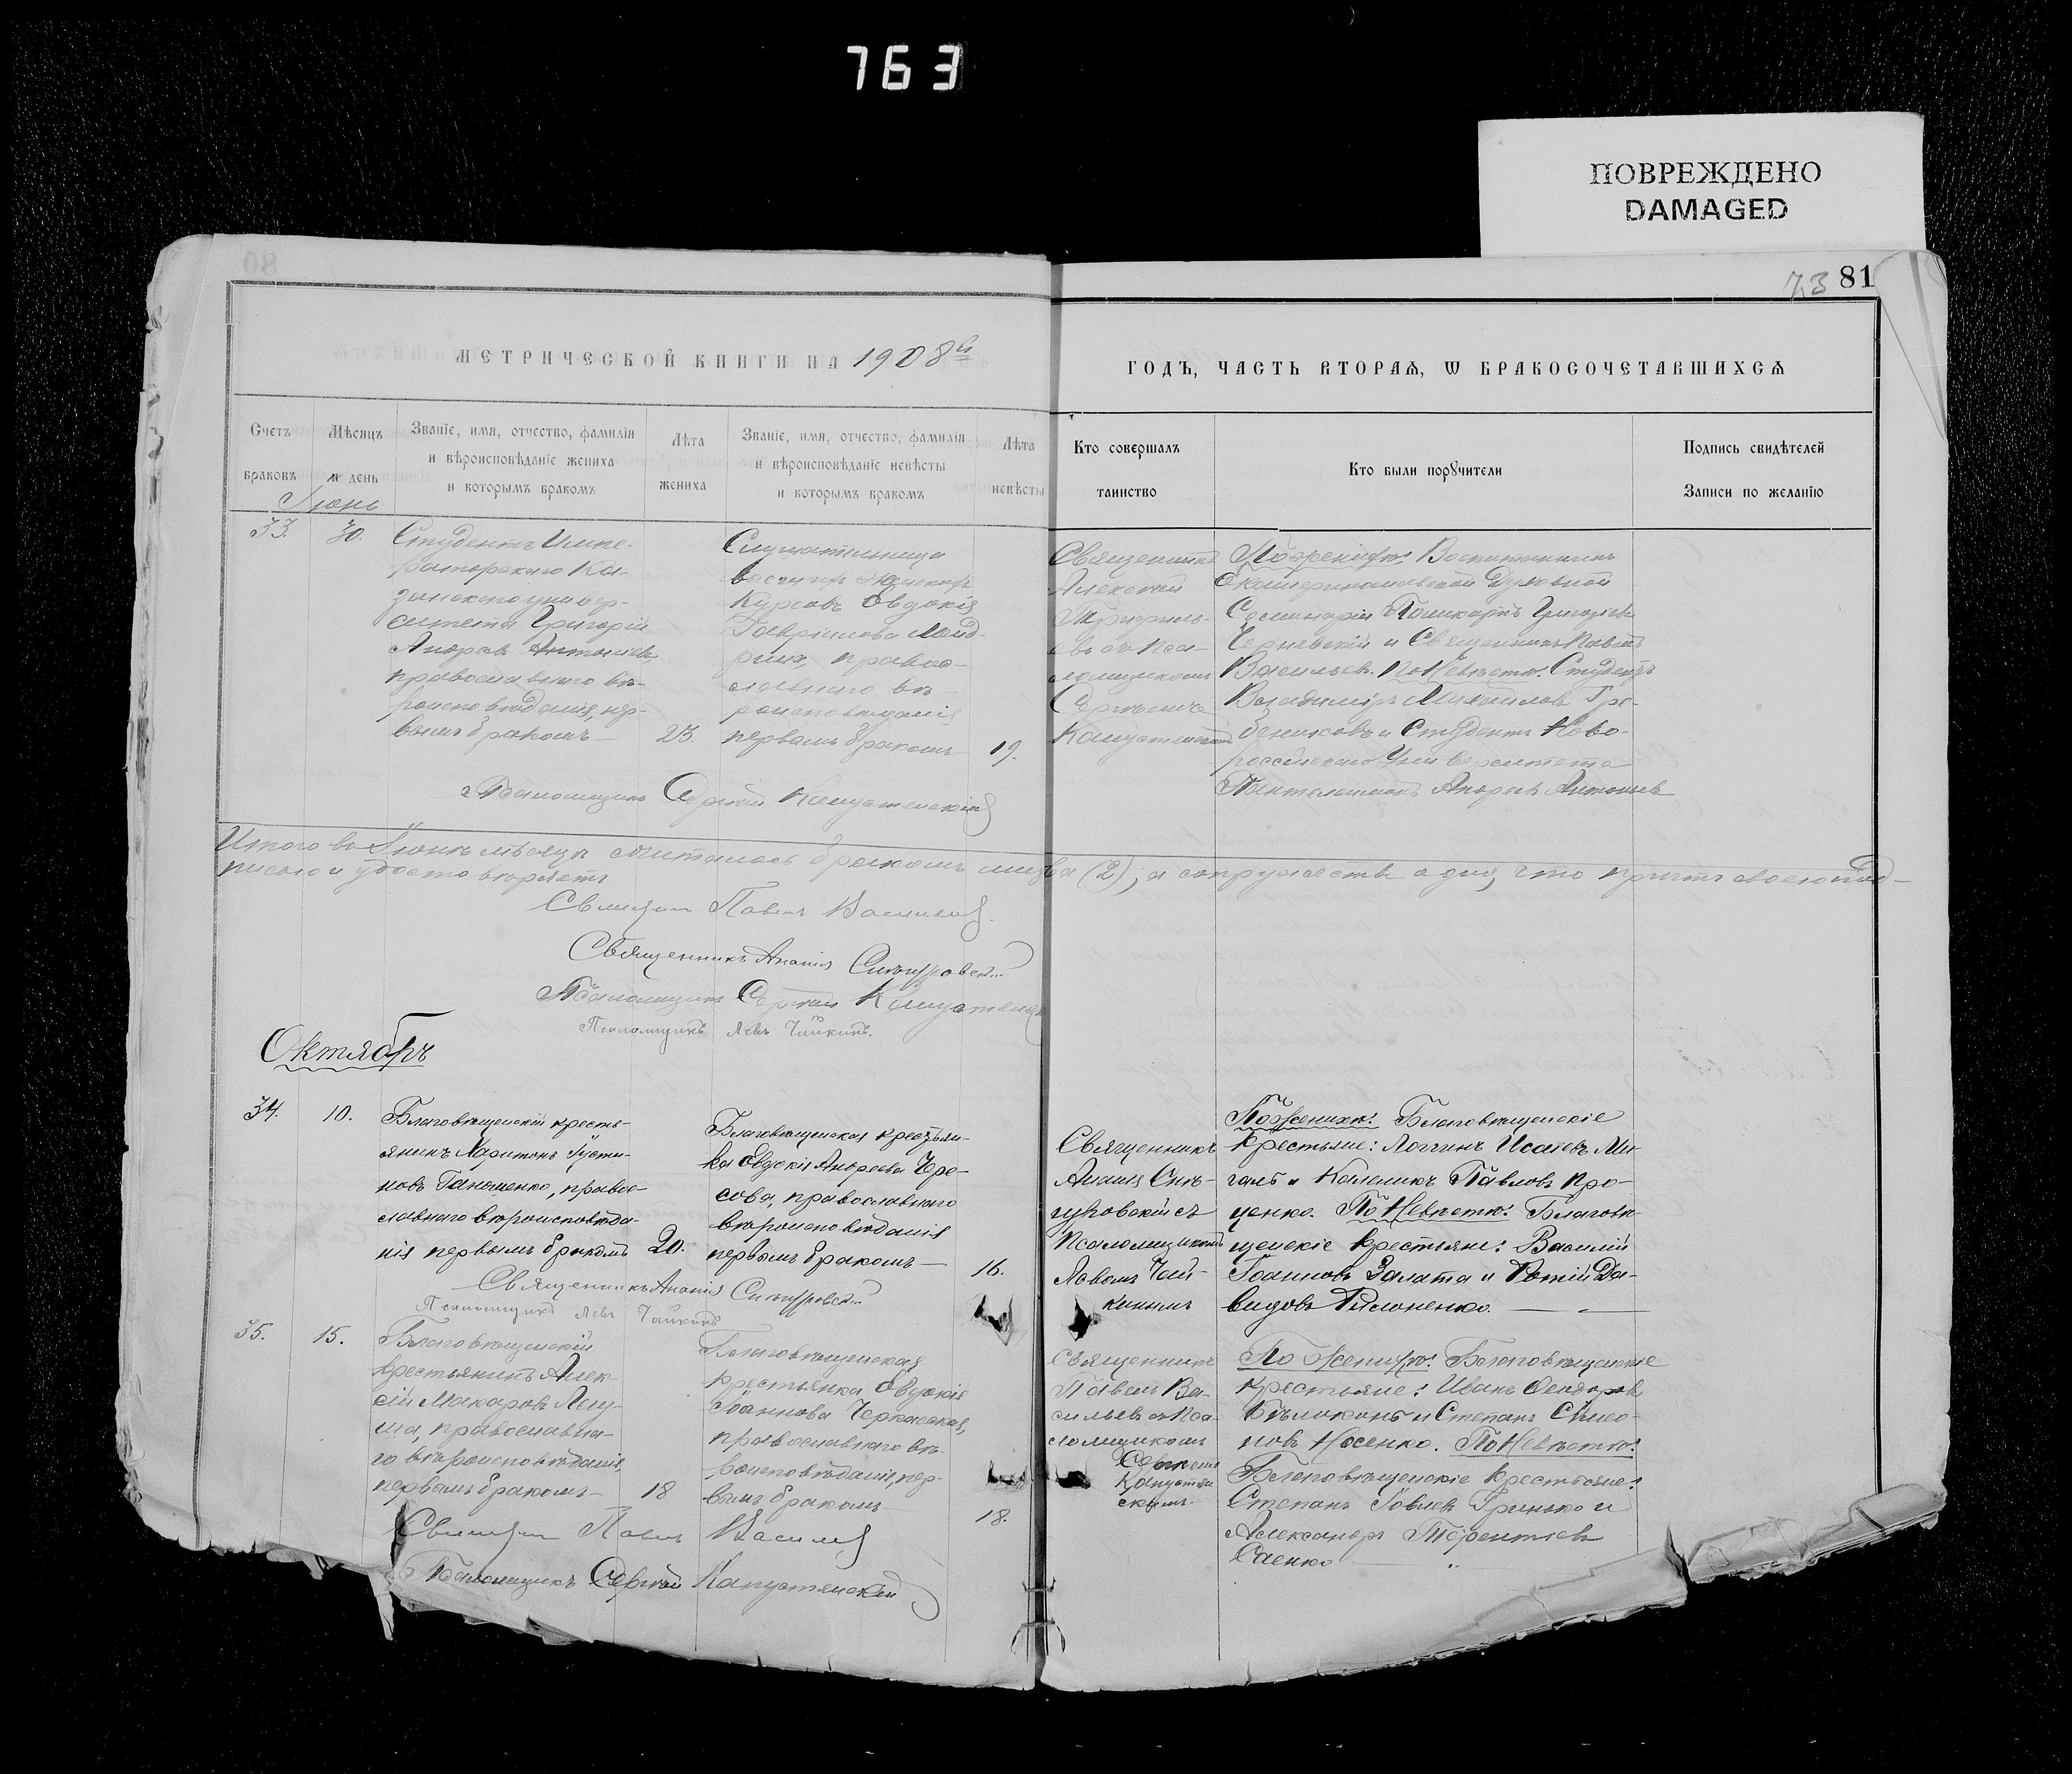 763
ПОВРЕЖДЕНО
DAMAGED
73 81
МЕТРИЧЕСКОЙ КНИГИ НА 1908й
ГОДЪ, ЧАСТЬ ВТОРАѦ, Ѡ БРАКОСОЧЕТАВШИХСѦ
Счетъ браковъ
Мѣсяцъ и день
Званіе, имя, отчество, фамилія
и вѣроисповѣданіе жениха
и которымъ бракомъ
Лѣта
жениха
Званіе, имя, отчество, фамилія
и вѣроисповѣданіе невѣсты
и которымъ бракомъ
Лѣта
невѣсты
Кто совершалъ
таинство
Кто были порꙋчители
Подпись свидѣтелей
Записи по желанію
Іюнь
33.
30.
Студентъ Импе-
раторскаго Ка-
занскаго универ-
ситета Григорій
Андреевъ Антоніевъ,
православнаго вѣ-
роисповѣданія, пер-
вымъ бракомъ
23.
Слушательница
высшихъ женскихъ
Курсовъ Евдокія
Гавріилова
право-
славнаго вѣ-
роисповѣданія
первымъ бракомъ
19.
Священникъ
Алексѣй
Григорь-
евъ съ Пса-
ломщикомъ
Сергѣемъ
По женихѣ: Воспитанникъ
Екатеринославской Духовной
Семинаріи Поликарпъ Григорьевъ
и Священникъ Павелъ
Васильевъ. По Невѣстѣ: Студентъ
Владимиръ Михаиловъ Гре-
бенниковъ и Студентъ Ново-
россійскаго Университета
Пантелеимонъ Андреевъ Антоніевъ
Псаломщикъ Сергѣй Капустянскій
Итого въ Іюнѣ мѣсяцѣ считалось бракомъ лицъ два (2), а супружество одно, что причтъ своею под-
писью и удостовѣряетъ
Священ Павелъ Васильевъ
Священникъ Ананія
Псаломщикъ Сергѣй Капустянскій
Псаломщикъ Левъ Чайкинъ.
Октябрь
34.
10.
Благовѣщенскій кресть-
янинъ Харитонъ Іусти-
новъ Ганошенко, право-
славнаго вѣроисповѣда-
нія первымъ бракомъ
20.
Благовѣщенская крестьян-
ка Евдокія Андреева Чре-
сова, православнаго
вѣроисповѣданія
первымъ бракомъ
16.
Священникъ
Ананія Снѣ-
гуровскій съ
Псаломщикомъ
Львомъ Чай-
кинымъ
По женихѣ: Благовѣщенскіе
крестьяне: Логгинъ Исаіевъ Ми-
галь и Каленикъ Павловъ Про-
ценко. По Невѣстѣ: Благовѣ-
щенскіе крестьяне: Василій
Іоанновъ Залата и Фотій Да-
видовъ Филоненко.
Священникъ Ананія Снѣгуровск..
Псаломщикъ Левъ Чайкинъ
35.
15.
Благовѣщенскій
крестьянинъ Алек-
сій Макаровъ
православна-
го вѣроисповѣданія,
первымъ бракомъ
18
Благовѣщенская
крестьянка Евдокія
Іоаннова Черкасская,
православнаго вѣ-
роисповѣданія, пер-
вымъ бракомъ
18.
Священникъ
Павелъ Ва-
сильевъ съ Пса-
ломщикомъ
Сергѣемъ
Капустян
скимъ.
По женихѣ: Благовѣщенскіе
крестьяне: Иванъ Ѳеодоровъ
Бѣлоконь и Степанъ Симео-
новъ Носенко. По Невѣстѣ:
Благовѣщенскіе крестьяне:
Степанъ Іовлевъ Гринько и
Александръ Терентіевъ
Саенко
Священ Павелъ Васильевъ
Псаломщикъ Сергѣй Капустянскій